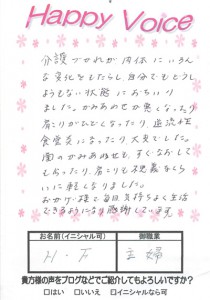 Happy Voice
介護づかれが肉体にいろん
な変化をもたらし、自分でもどうし
ようもない状態におちいり
ました。かみあわせが悪くなったり
肩こりがひどくなったり、逆流性
食道炎になったり大変でした。
歯のかみあわせも、すぐなおして
もらったり、肩こりも不思議なくら
いに軽くなりました。
おかげ様で毎日気持ちよく生活
できるようになり感謝しています。
お名前(イニシャル可)
御職業
H・F
主婦
貴方様の声をブログなどでご紹介してもよろしいですか?
□はい □いいえ □イニシャルなら可